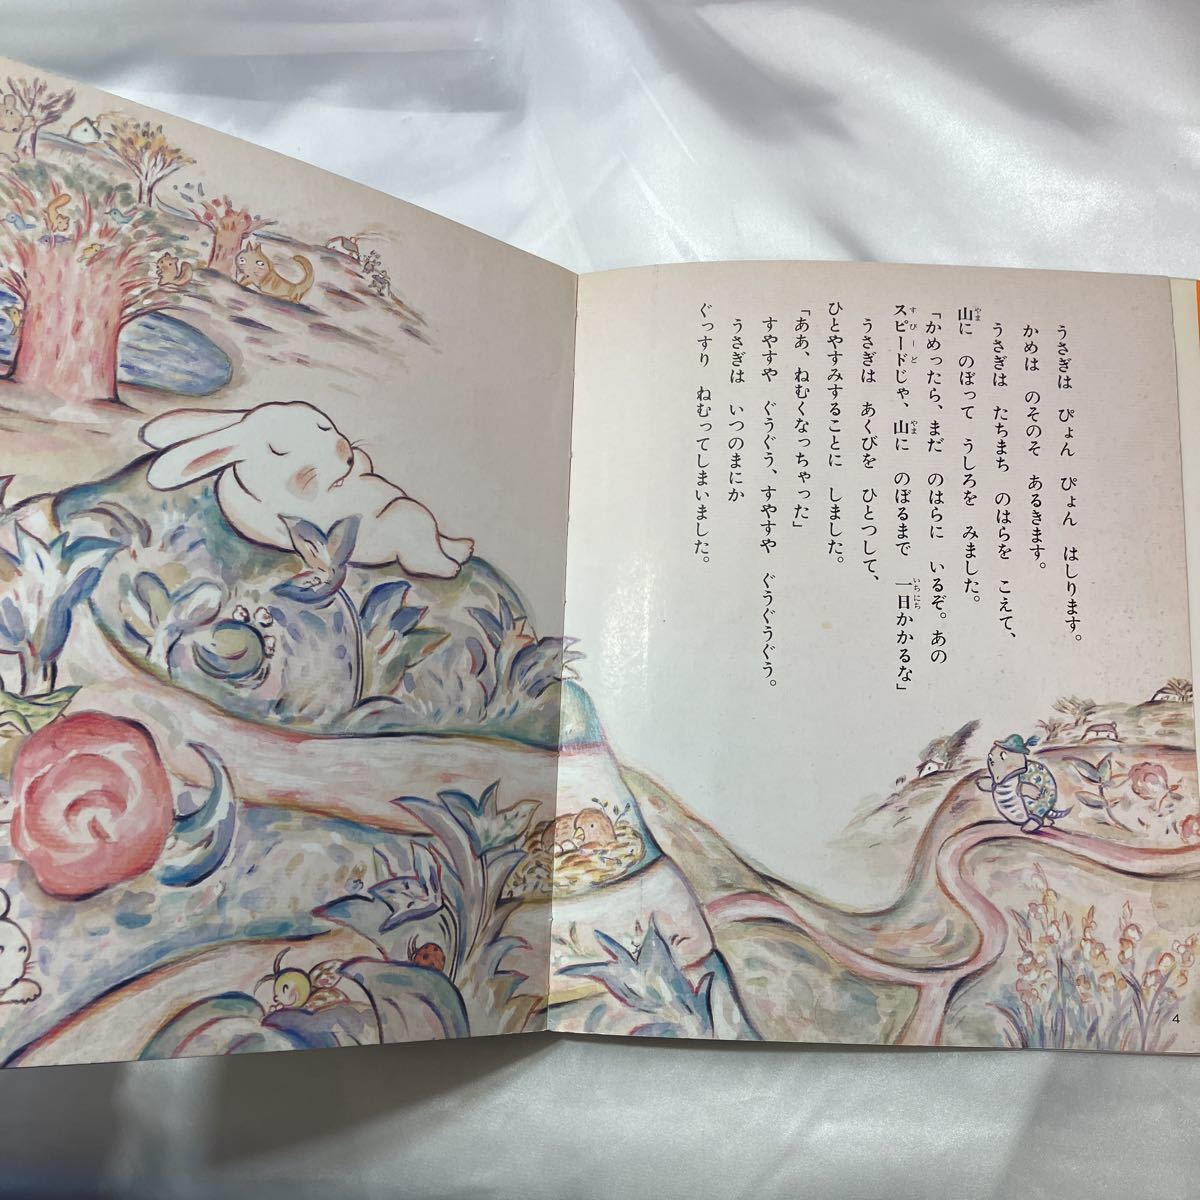 うさぎは ぴょん ぴょん はしります。
かめは のそのそ あるきます。
うさぎは たちまち のはらを こえて、
山に のぼって うしろを みました。
「かめったら、まだ のはらに いるぞ。あの
スピードじゃ、山に のぼるまで 一日かかるな」
うさぎは あくびを ひとつして、
ひとやすみすることに しました。
「ああ、ねむくなっちゃった」
すやすや ぐうぐう、すやすや ぐうぐうぐう。
うさぎは いつのまにか
ぐっすり ねむってしまいました。
やま
すぴーど
やま
いちにち
4